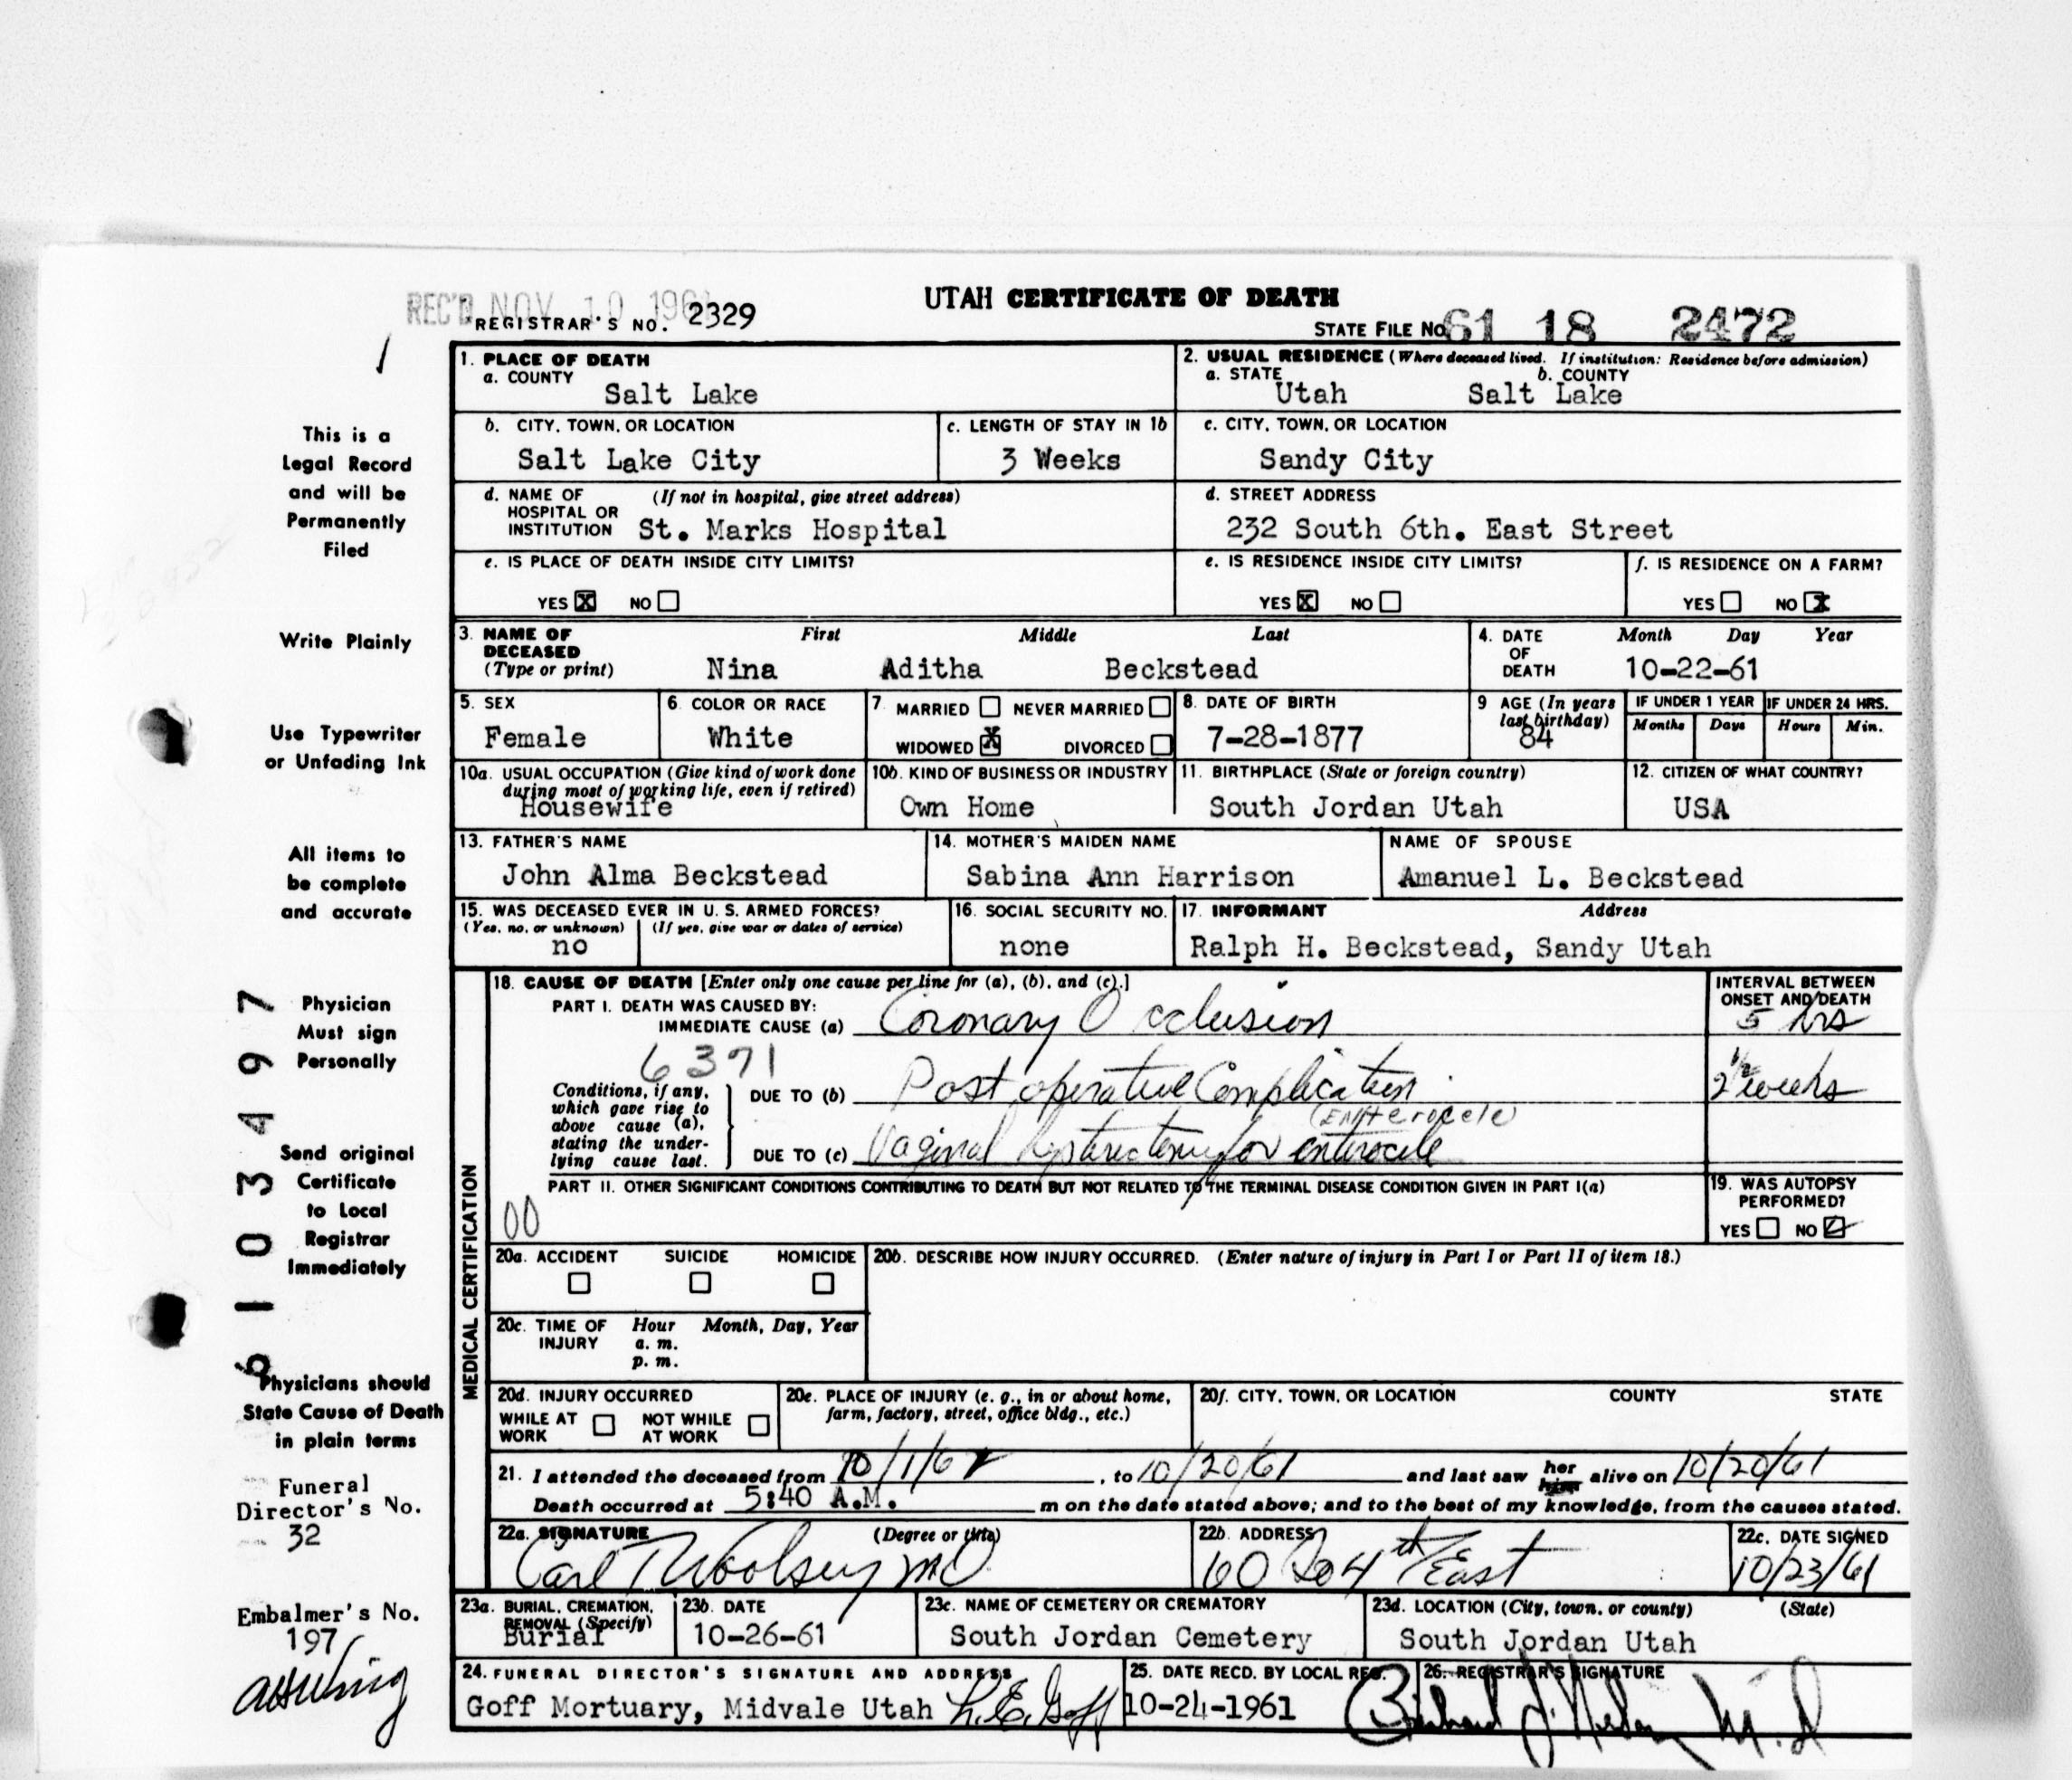 UTAH CERTIFICATE OF DEATH
REC'D NOV 10 1961
REGISTRAR'S NO. 2329
STATE FILE NO. 61 18 2472
This is a
Legal Record
and will be
Permanently
Filed
Write Plainly
Use Typewriter
or Unfading Ink
All items to
be complete
and accurate
Physician
Must sign
Personally
Send original
Certificate
to Local
Registrar
Immediately
Physicians should
State Cause of Death
in plain terms
61 03497
Funeral
Director's No.
32
Embalmer's No.
197
1. PLACE OF DEATH
a. COUNTY
Salt Lake
2. USUAL RESIDENCE (Where deceased lived. If institution: Residence before admission)
a. STATE b. COUNTY
Utah Salt Lake
b. CITY, TOWN, OR LOCATION
Salt Lake City
c. LENGTH OF STAY IN 1b
3 Weeks
c. CITY, TOWN, OR LOCATION
Sandy City
d. NAME OF (If not in hospital, give street address)
HOSPITAL OR
INSTITUTION St. Marks Hospital
d. STREET ADDRESS
232 South 6th. East Street
e. IS PLACE OF DEATH INSIDE CITY LIMITS?
YES X NO
e. IS RESIDENCE INSIDE CITY LIMITS?
YES X NO
f. IS RESIDENCE ON A FARM?
YES NO X
3. NAME OF First Middle Last
DECEASED
(Type or print) Nina Aditha Beckstead
4. DATE Month Day Year
OF
DEATH 10-22-61
5. SEX
Female
6. COLOR OR RACE
White
7. MARRIED NEVER MARRIED
WIDOWED X DIVORCED
8. DATE OF BIRTH
7-28-1877
9 AGE (In years
last birthday)
84
IF UNDER 1 YEAR
Months Days
IF UNDER 24 HRS.
Hours Min.
10a. USUAL OCCUPATION (Give kind of work done
during most of working life, even if retired)
Housewife
10b. KIND OF BUSINESS OR INDUSTRY
Own Home
11. BIRTHPLACE (State or foreign country)
South Jordan Utah
12. CITIZEN OF WHAT COUNTRY?
USA
13. FATHER'S NAME
John Alma Beckstead
14. MOTHER'S MAIDEN NAME
Sabina Ann Harrison
NAME OF SPOUSE
Amanuel L. Beckstead
15. WAS DECEASED EVER IN U. S. ARMED FORCES?
(Yes, no, or unknown) (If yes, give war or dates of service)
no
16. SOCIAL SECURITY NO.
none
17. INFORMANT Address
Ralph H. Beckstead, Sandy Utah
MEDICAL CERTIFICATION
18. CAUSE OF DEATH [Enter only one cause per line for (a), (b), and (c).]
PART I. DEATH WAS CAUSED BY:
IMMEDIATE CAUSE (a) Coronary Occlusion
INTERVAL BETWEEN
ONSET AND DEATH
5 hrs
6371
Conditions, if any,
which gave rise to
above cause (a),
stating the under-
lying cause last.
DUE TO (b) Post operative Complication
2 1/2 weeks
(ENterocele)
DUE TO (c) Vaginal hysterectomy for enterocele
PART II. OTHER SIGNIFICANT CONDITIONS CONTRIBUTING TO DEATH BUT NOT RELATED TO THE TERMINAL DISEASE CONDITION GIVEN IN PART I(a)
00
19. WAS AUTOPSY
PERFORMED?
YES NO
20a. ACCIDENT SUICIDE HOMICIDE
20b. DESCRIBE HOW INJURY OCCURRED. (Enter nature of injury in Part I or Part II of item 18.)
20c. TIME OF Hour Month, Day, Year
INJURY a. m.
p. m.
20d. INJURY OCCURRED
WHILE AT NOT WHILE
WORK AT WORK
20e. PLACE OF INJURY (e. g., in or about home,
farm, factory, street, office bldg., etc.)
20f. CITY, TOWN, OR LOCATION COUNTY STATE
21. I attended the deceased from 10/1/61, to 10/20/61 and last saw her him alive on 10/20/61
Death occurred at 5:40 A.M. m on the date stated above; and to the best of my knowledge, from the causes stated.
22a. SIGNATURE (Degree or title)
Carl T Woolsey MD
22b. ADDRESS
60 So 4th East
22c. DATE SIGNED
10/23/61
23a. BURIAL, CREMATION,
REMOVAL (Specify)
Burial
23b. DATE
10-26-61
23c. NAME OF CEMETERY OR CREMATORY
South Jordan Cemetery
23d. LOCATION (City, town, or county) (State)
South Jordan Utah
24. FUNERAL DIRECTOR'S SIGNATURE AND ADDRESS
Goff Mortuary, Midvale Utah L.E. Goff
25. DATE RECD. BY LOCAL REG.
10-24-1961
26. REGISTRAR'S SIGNATURE
M.D